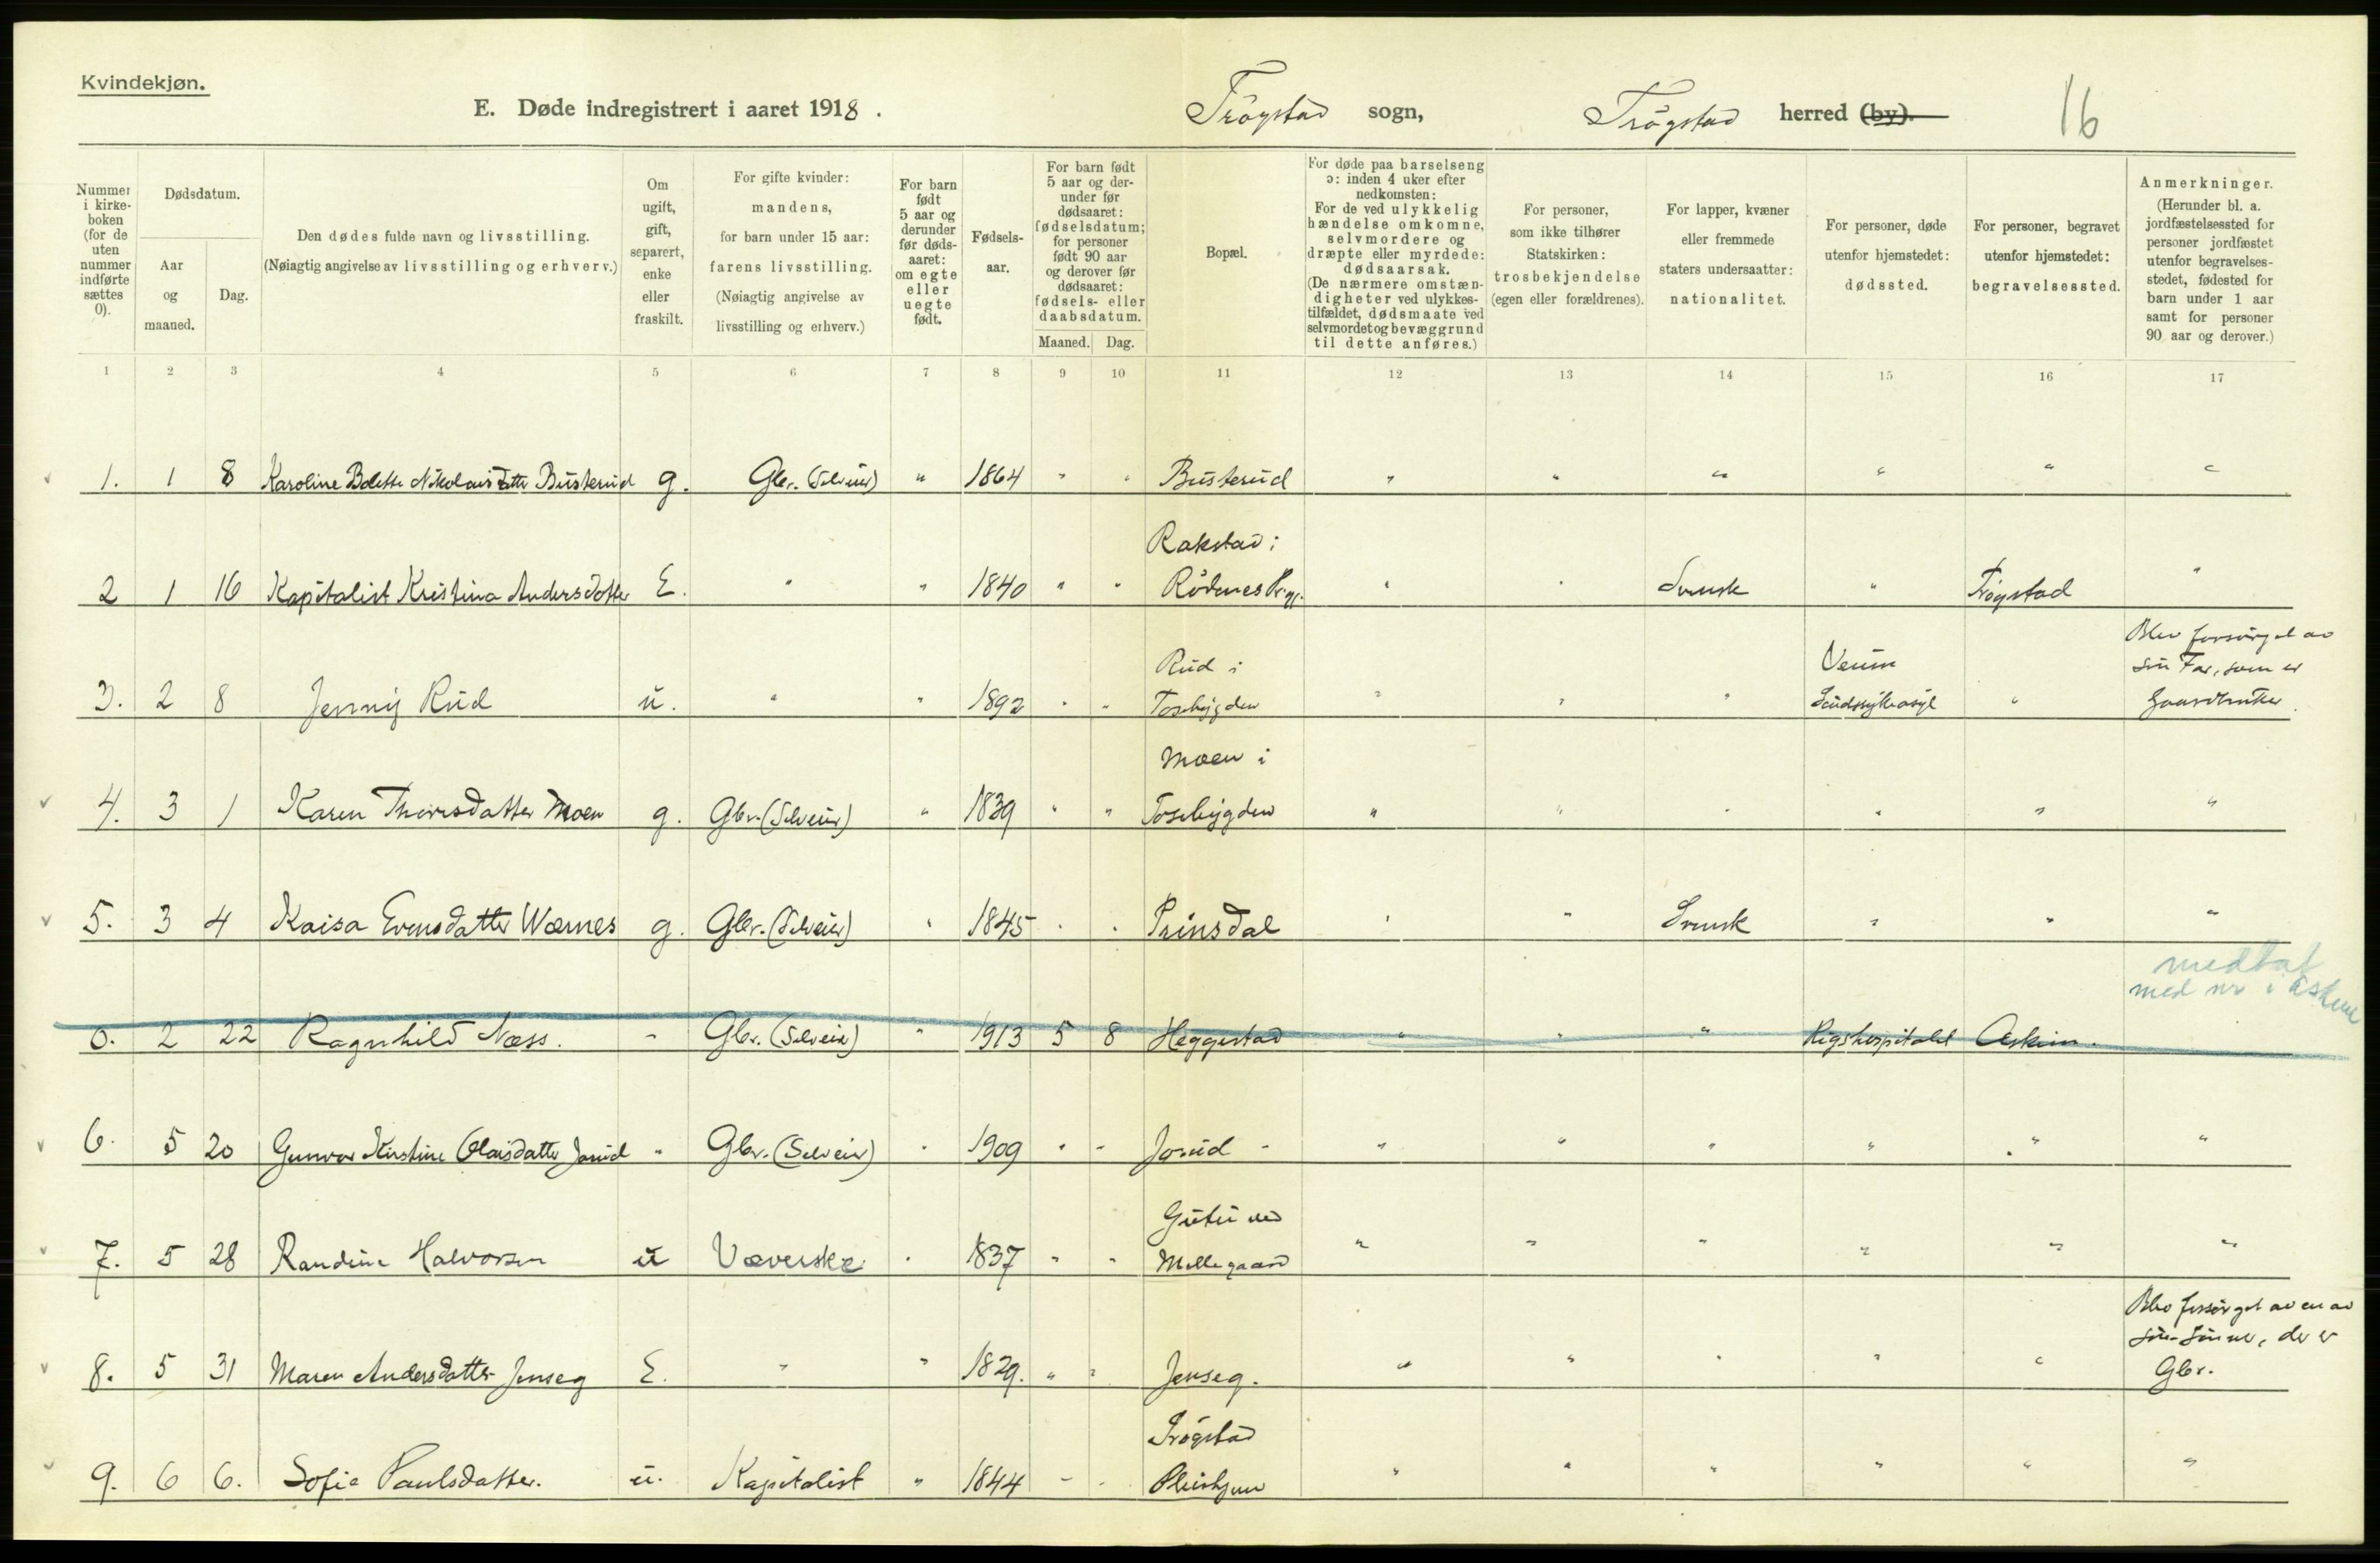 Kvindekjøn.
E. Døde indregistrert i aaret 1918.
Trögstad sogn, Trögstad herred (by).
16
Nummer i kirkeboken (for de uten nummer indførte sættes 0).
Dødsdatum.
Aar og maaned.
Dag.
Den dødes fulde navn og livsstilling.
(Nøiagtig angivelse av livsstilling og erhverv.)
Om ugift, gift, separert, enke eller fraskilt.
For gifte kvinder: mandens, for barn under 15 aar: farens livsstilling. (Nøiagtig angivelse av livsstilling og erhverv.)
For barn født 5 aar og derunder før dødsaaret: om egte eller uegte født.
Fødselsaar.
For barn født 5 aar og derunder før dødsaaret: fødselsdatum; for personer født 90 aar og derover før dødsaaret: fødsels- eller daabsdatum.
Maaned. Dag.
Bopæl.
For døde paa barselseng ɔ: inden 4 uker efter nedkomsten: For de ved ulykkelig hændelse omkomne, selvmordere og dræpte eller myrdede: dødsaarsak. (De nærmere omstændigheter ved ulykkestilfældet, dødsmaate ved selvmordet og bevæggrund til dette anføres.)
For personer, som ikke tilhører Statskirken: trosbekjendelse (egen eller forældrenes).
For lapper, kvæner eller fremmede staters undersaatter: nationalitet.
For personer, døde utenfor hjemstedet: dødssted.
For personer, begravet utenfor hjemstedet: begravelsessted.
Anmerkninger. (Herunder bl. a. jordfæstelsessted for personer jordfæstet utenfor begravelsesstedet, fødested for barn under 1 aar samt for personer 90 aar og derover.)
1 2 3 4 5 6 7 8 9 10 11 12 13 14 15 16 17
1. 1 8 Karoline Bolette Nikolaisdatter Busterud g. Gbr. (Selveier) " 1864 " " Busterud " " " " " "
Rakstad i
2 1 16 Kapitalist Kristina Andersdatter E. " " 1840 " " Rödenes Pr.gj. " " Svensk " Trögstad "
Rud i Veum Blev forsörget av
sin Far, som er
3. 2 8 Jenny Rud u. " " 1892 " " Tosebygden " " " Sindssykeasyl " Gaardbruker.
Moen i
4. 3 1 Karen Thorvsdatter Moen g. Gbr. (Selveier) " 1839 " " Tosebygden " " " " " "
5. 3 4 Kaisa Evensdatter Wærnes g. Gbr. (Selveier) " 1845 " " Prinsdal " " Svensk " " "
medtat
med nr i Askim
0. 2 22 Ragnhild Næss. " Gbr. (Selveier) " 1913 5 8 Heggestad " " " Rigshospitalet Askim.
6. 5 20 Gunvor Kirstine Olaisdatter Jorud " Gbr. (Selveier) " 1909 " " Jorud " " " " " "
7. 5 28 Randine Halvorsen u Væverske " 1837 " " Mellegaard " " " " " "
Blev forsörget av en av
sine Sönner, der er
8. 5 31 Maren Andersdatter Jenseg E. " " 1829. " " Jenseg. " " " " " Gbr.
Trögstad
9. 6 6. Sofie Paulsdatter. u. Kapitalist " 1844 " " Pleiehjem " " " " " "